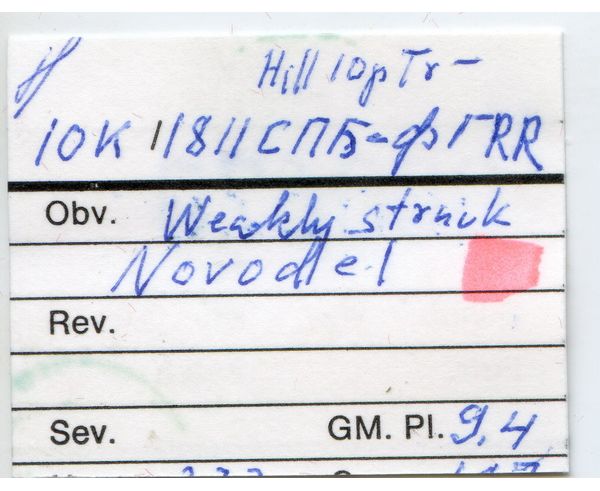 Hill 10p Tr-
10K 1811 СПБ-ФГ RR
Obv. Weakly struck
Novodel
Rev.
Sev. GM. Pl. 9,4